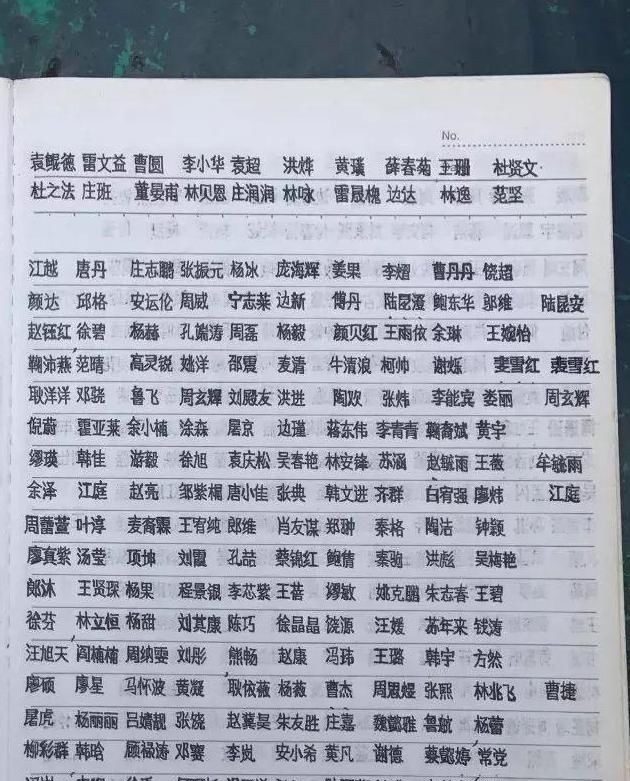 No.
袁鲲德 雷文益 曹圆 李小华 袁超 洪烨 黄瑱 薛春菊 王珊 杜贤文
杜之法 庄班 董晏甫 林贝恩 庄润润 林咏 雷晟槐 边达 林逸 范坚
江越 唐丹 庄志鹏 张振元 杨冰 庞海辉 姜果 李熠 曹丹丹 饶超
颜达 邱格 安运伦 周威 宁志莱 边新 傅丹 鲍东华 邬维 陆昆安
赵钰红 徐碧 杨赫 孔嵛涛 周磊 杨毅 颜贝红 王雨依 余琳 王婉怡
鞠沛燕 范晴 高灵锐 姚洋 邵震 麦清 牛清浪 柯帅 谢烁 斐雪红 裴雪红
耿洋洋 邓骁 鲁飞 周玄辉 刘殿友 洪进 陶双 张炜 李能宾 娄丽 周玄辉
倪蔚 霍亚莱 余小楠 涂森 屠京 边瑾 蒋东伟 李青青 鞠裔斌 黄宇
缪瑛 韩佳 游毅 徐旭 袁庆松 吴春艳 林安锋 苏涵 赵毓雨 王薇 牟毓雨
余泽 江庭 赵亮 邹紫楣 唐小佳 张典 韩文进 齐群 白宥强 廖炜 江庭
周蕾萱 叶淳 麦裔霖 王宥纯 郎维 肖友谋 郑翀 秦格 陶洁 钟颖
廖真紫 汤莹 项坤 刘霞 孔喆 蔡锦红 鲍倩 秦驰 洪彪 吴梅艳
郎沐 王贤琛 杨果 程景银 李芯紫 王蓓 缪敏 姚克鹏 朱志春 王碧
徐芬 林立恒 杨甜 刘其康 陈巧 徐晶晶 饶源 汪媛 苏年来 钱涛
汪旭天 阎楠楠 周纳雯 刘彤 熊畅 赵康 冯玮 王璐 韩宇 方然
廖硕 廖星 马怀波 黄凝 耿依薇 杨薇 曹杰 周思煜 张熙 林兆飞 曹捷
屠虎 杨丽丽 吕婧靓 张饶 赵冀昊 朱友胜 庄嘉 魏懿雅 鲁敏 杨蕾
柳彩群 韩晗 顾禄涛 邓雯 李岚 安小希 黄凡 谢德 蔡懿婷 常党